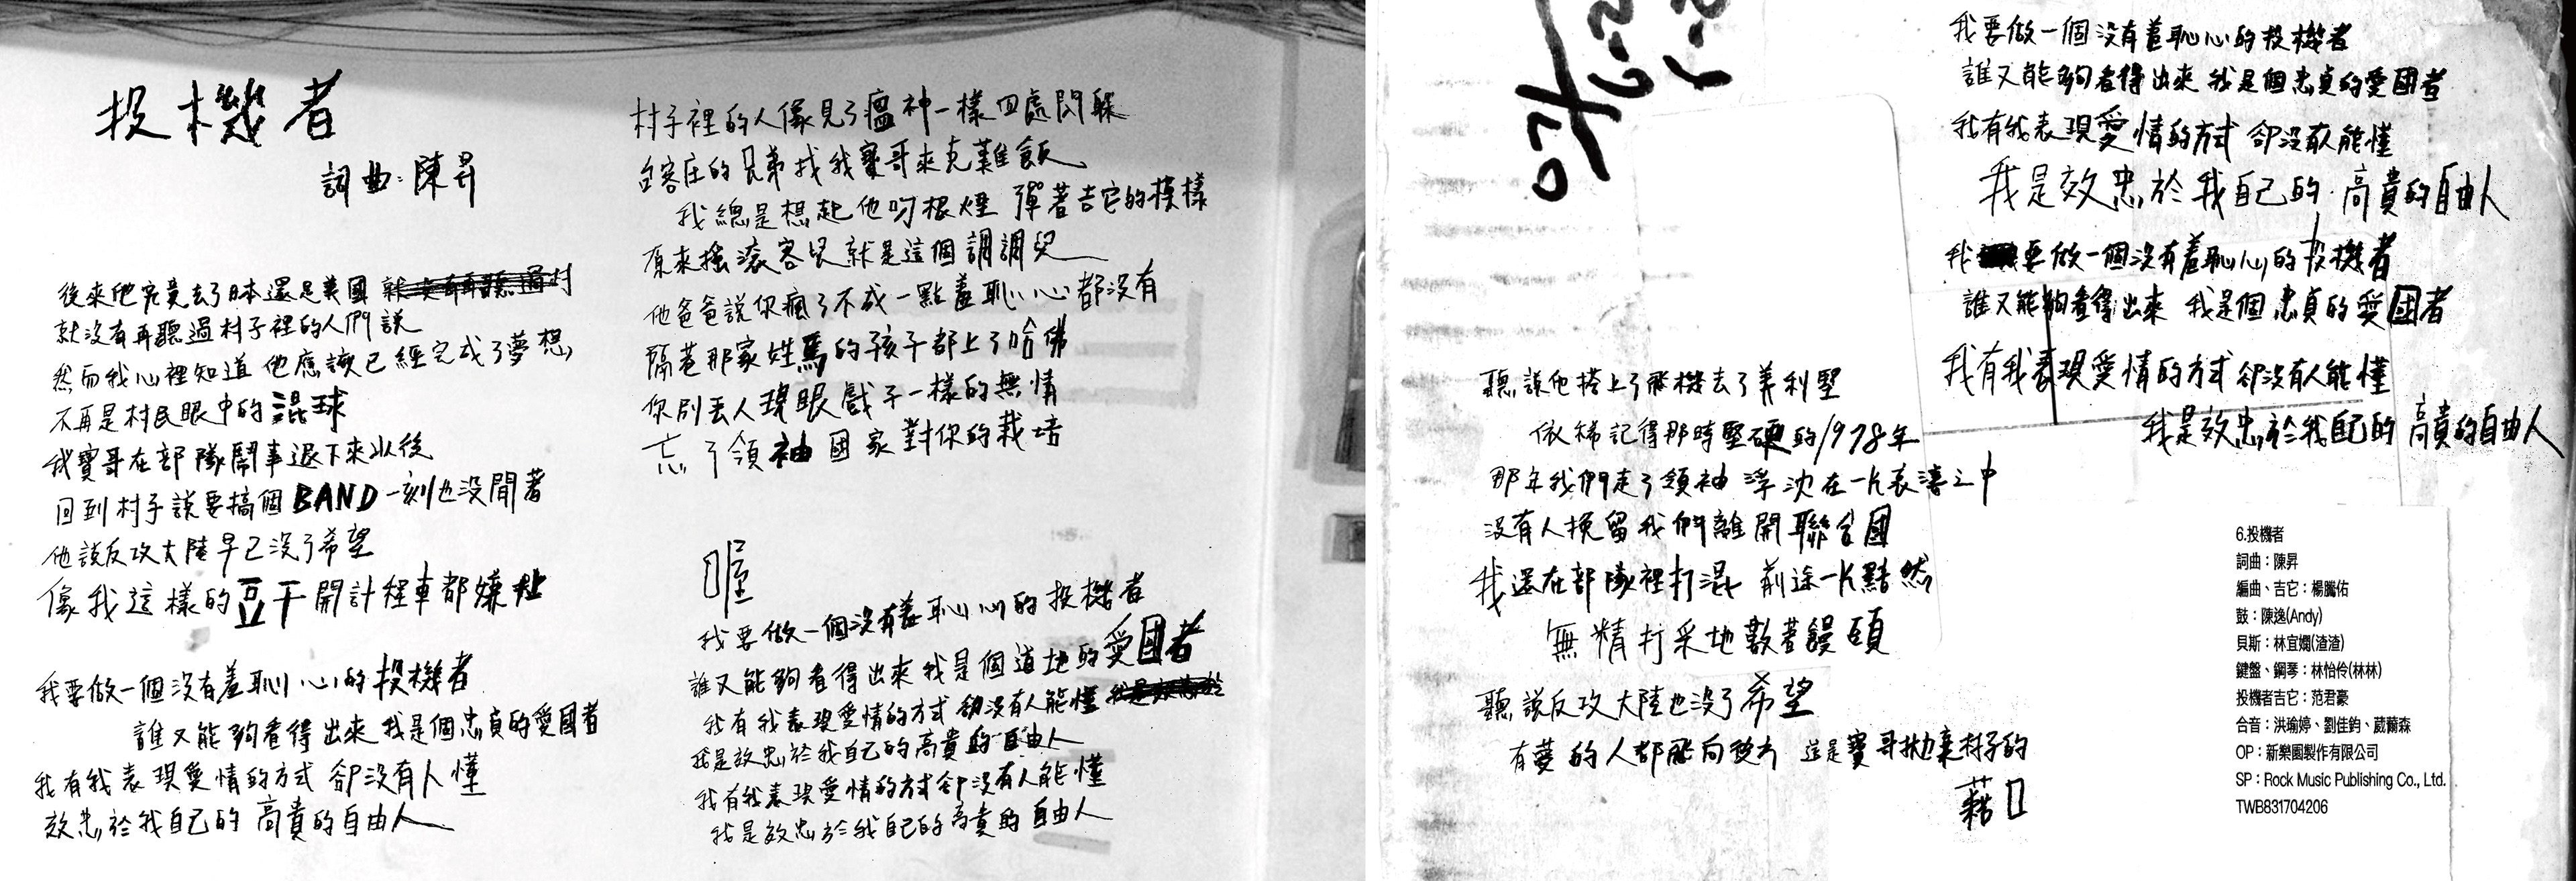 投機者
詞曲：陳昇
後來他究竟去了日本還是美國
就沒有再聽過村子裡的人們說
然而我心裡知道 他應該已經完成了夢想
不再是村民眼中的混球
我寶哥在部隊鬧事退下來以後
回到村子說要搞個BAND 一刻也沒閒著
他說反攻大陸早已沒了希望
像我這樣的豆干開計程車都嫌
我要做一個沒有羞恥心的投機者
誰又能夠看得出來 我是個忠貞的愛國者
我有我表現愛情的方式 卻沒有人懂
效忠於我自己的 高貴的自由人
村子裡的人像見了瘟神一樣四處閃躲
台客庄的兄弟找我寶哥來克難飯
我總是想起他叼根煙 彈著吉它的模樣
原來搖滾客兒就是這個調調兒
他爸爸說你瘋了不成一點羞恥心都沒有
隔巷那家姓馬的孩子都上了哈佛
你別丟人現眼戲子一樣的無情
忘了領袖國家對你的栽培
喔
我要做一個沒有羞恥心的投機者
誰又能夠看得出來 我是個道地的愛國者
我有我表現愛情的方式 卻沒有人能懂
我是效忠於我自己的高貴的自由人
我有我表現愛情的方式卻沒有人能懂
我是效忠於我自己的高貴的自由人
聽說他搭上了飛機去了美利堅
依稀記得那時堅硬的1978年
那年我們走了領袖 浮沈在一片哀悽之中
沒有人挽留我們離開聯合國
我還在部隊裡打混 前途一片黯然
無精打采地數著饅頭
聽說反攻大陸也沒了希望
有夢的人都飛向遠方 這是寶哥拋棄村子的
藉口
我要做一個沒有羞恥心的投機者
誰又能夠看得出來 我是個忠貞的愛國者
我有我表現愛情的方式 卻沒有人能懂
我是效忠於我自己的 高貴的自由人
我要做一個沒有羞恥心的投機者
誰又能夠看得出來 我是個忠貞的愛國者
我有我表現愛情的方式 卻沒有人能懂
我是效忠於我自己的 高貴的自由人
6.投機者
詞曲：陳昇
編曲、吉它：楊騰佑
鼓：陳逸(Andy)
貝斯：林宜嫺(渣渣)
鍵盤、鋼琴：林怡伶(林林)
投機者吉它：范君豪
合音：洪瑜婷、劉佳鈞、葳爾森
OP：新樂園製作有限公司
SP：Rock Music Publishing Co., Ltd.
TWB831704206